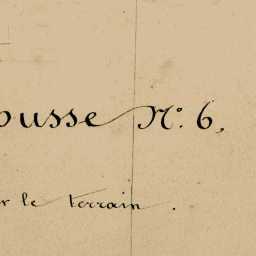 ousse N.º 6,
r le terrain.